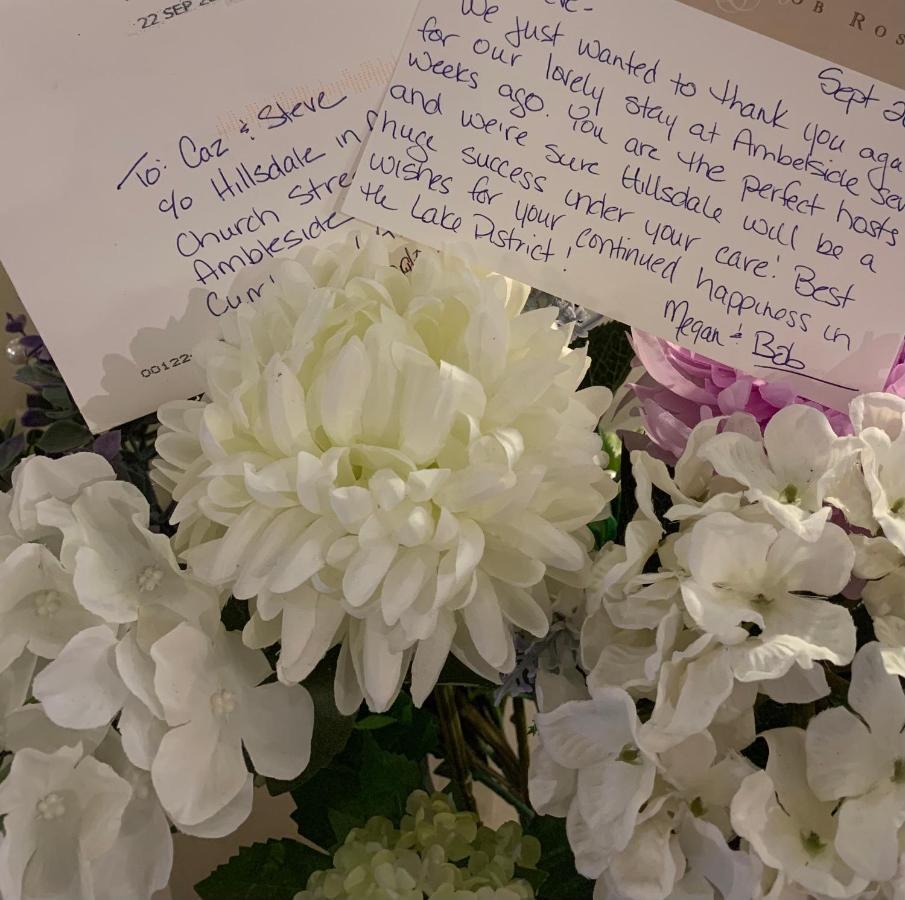 22 SEP 20
To: Caz & Steve
c/o Hillsdale in
Church Stre
Ambleside
Cum
00122
OB ROS
Sept 20
ve-
We just wanted to thank you aga
for our lovely stay at Ambelside sev
weeks ago. You are the perfect hosts
and we're sure Hillsdale will be a
huge success under your care! Best
wishes for your continued happiness in
the Lake District!
Megan & Bob